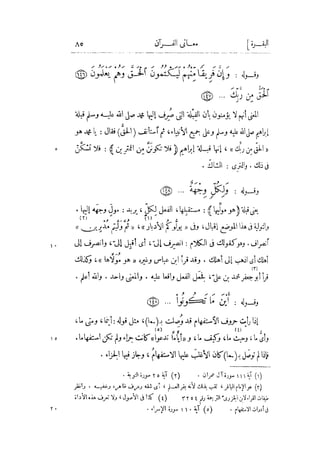 البقرة ] معانى القرآن ٨٥
وقوله : وَإِنَّ فَرِيقًا مِّنْهُمْ لَيَكْتُمُونَ الْحَقَّ وَهُمْ يَعْلَمُونَ (١٤٦)
الْحَقُّ مِن رَّبِّكَ ... (١٤٧)
المعنى أنهم لا يؤمنون بأن القبلة التى صُرِف إليها محمد صلى الله عليه وسلم قبلة
إبراهيم صلى الله عليه وسلم وعلى جميع الأنبياء، ثم استأنف (الحقّ) فقال : يا محمد هو
« الحق من ربك » ، إنها قبلة إبراهيم ﴿ فلا تكوننّ من الممترين ﴾ : فلا تشكّنّ ٥
فى ذلك . والممترى : الشاكّ .
وقوله : وَلِكُلٍّ وِجْهَةٌ ... (١٤٨)
يعنى قبلة ﴿ هو مولّيها ﴾ : مستقبلها، الفعل لكلٍّ، يريد : مولٍّ وجهه إليها .
والتولية فى هذا الموضع إقبال، وفى « يولّوكم الأدبار » (١)، « ثم ولّيتم مدبرين » (٢)
انصراف . وهو كقولك فى الكلام : انصرف إلىّ، أى أقبل إلىّ، وانصرف إلى ١٠
أهلك أى اذهب إلى أهلك . وقد قرأ ابن عباس وغيره « هو مُولّاها » ، وكذلك
قرأ أبو جعفر محمد بن علىّ (٣)، فجعل الفعل واقعا عليه . والمعنى واحد . والله أعلم .
وقوله : أَيْنَ مَا تَكُونُوا ... (١٤٨)
إذا رأيت حروف الاستفهام قد وُصِلت بـ(ـما)، مثل قوله : أينما، ومتى ما،
وأىّ ما، وحيث ما، وكيف ما (٤)، و « أيّا ما تدعوا » (٥) كانت جزاء ولم تكن استفهاما . ١٥
فإذا لم توصل بـ(ـما) كان الأغلب عليها الاستفهام، وجاز فيها الجزاء .
(١) آية ١١١ سورة آل عمران . (٢) آية ٢٥ سورة التوبة .
(٣) هو الإمام الباقر، لقب بذلك لأنه بقر العلم، أى شقه وعرف ظاهره وخفيه . وانظر
طبقات القراء لابن الجزرى الترجمة رقم ٣٢٥٤ (٤) كذا فى الأصول، ولا تعرف هذه الأداة
فى أدوات الاستفهام . (٥) آية ١١٠ سورة الإسراء . ٢٠